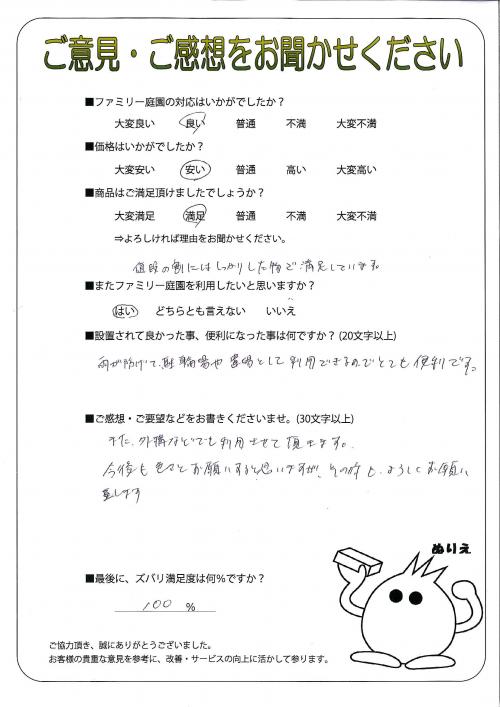 ご意見・ご感想をお聞かせください
■ファミリー庭園の対応はいかがでしたか？
大変良い 良い 普通 不満 大変不満
■価格はいかがでしたか？
大変安い 安い 普通 高い 大変高い
■商品はご満足頂けましたでしょうか？
大変満足 満足 普通 不満 大変不満
⇒よろしければ理由をお聞かせください。
値段の割にはしっかりした物で満足しています。
■またファミリー庭園を利用したいと思いますか？
はい どちらとも言えない いいえ
■設置されて良かった事、便利になった事は何ですか？(20文字以上)
雨が防げて、駐輪場や置場として利用できるのでとても便利です。
■ご感想・ご要望などをお書きくださいませ。(30文字以上)
また、外構などでも利用させて頂きます。
今後も色々とお願いすると思いますが、その時も、よろしくお願い
致します
ぬりえ
■最後に、ズバリ満足度は何％ですか？
100 %
ご協力頂き、誠にありがとうございました。
お客様の貴重な意見を参考に、改善・サービスの向上に活かして参ります。